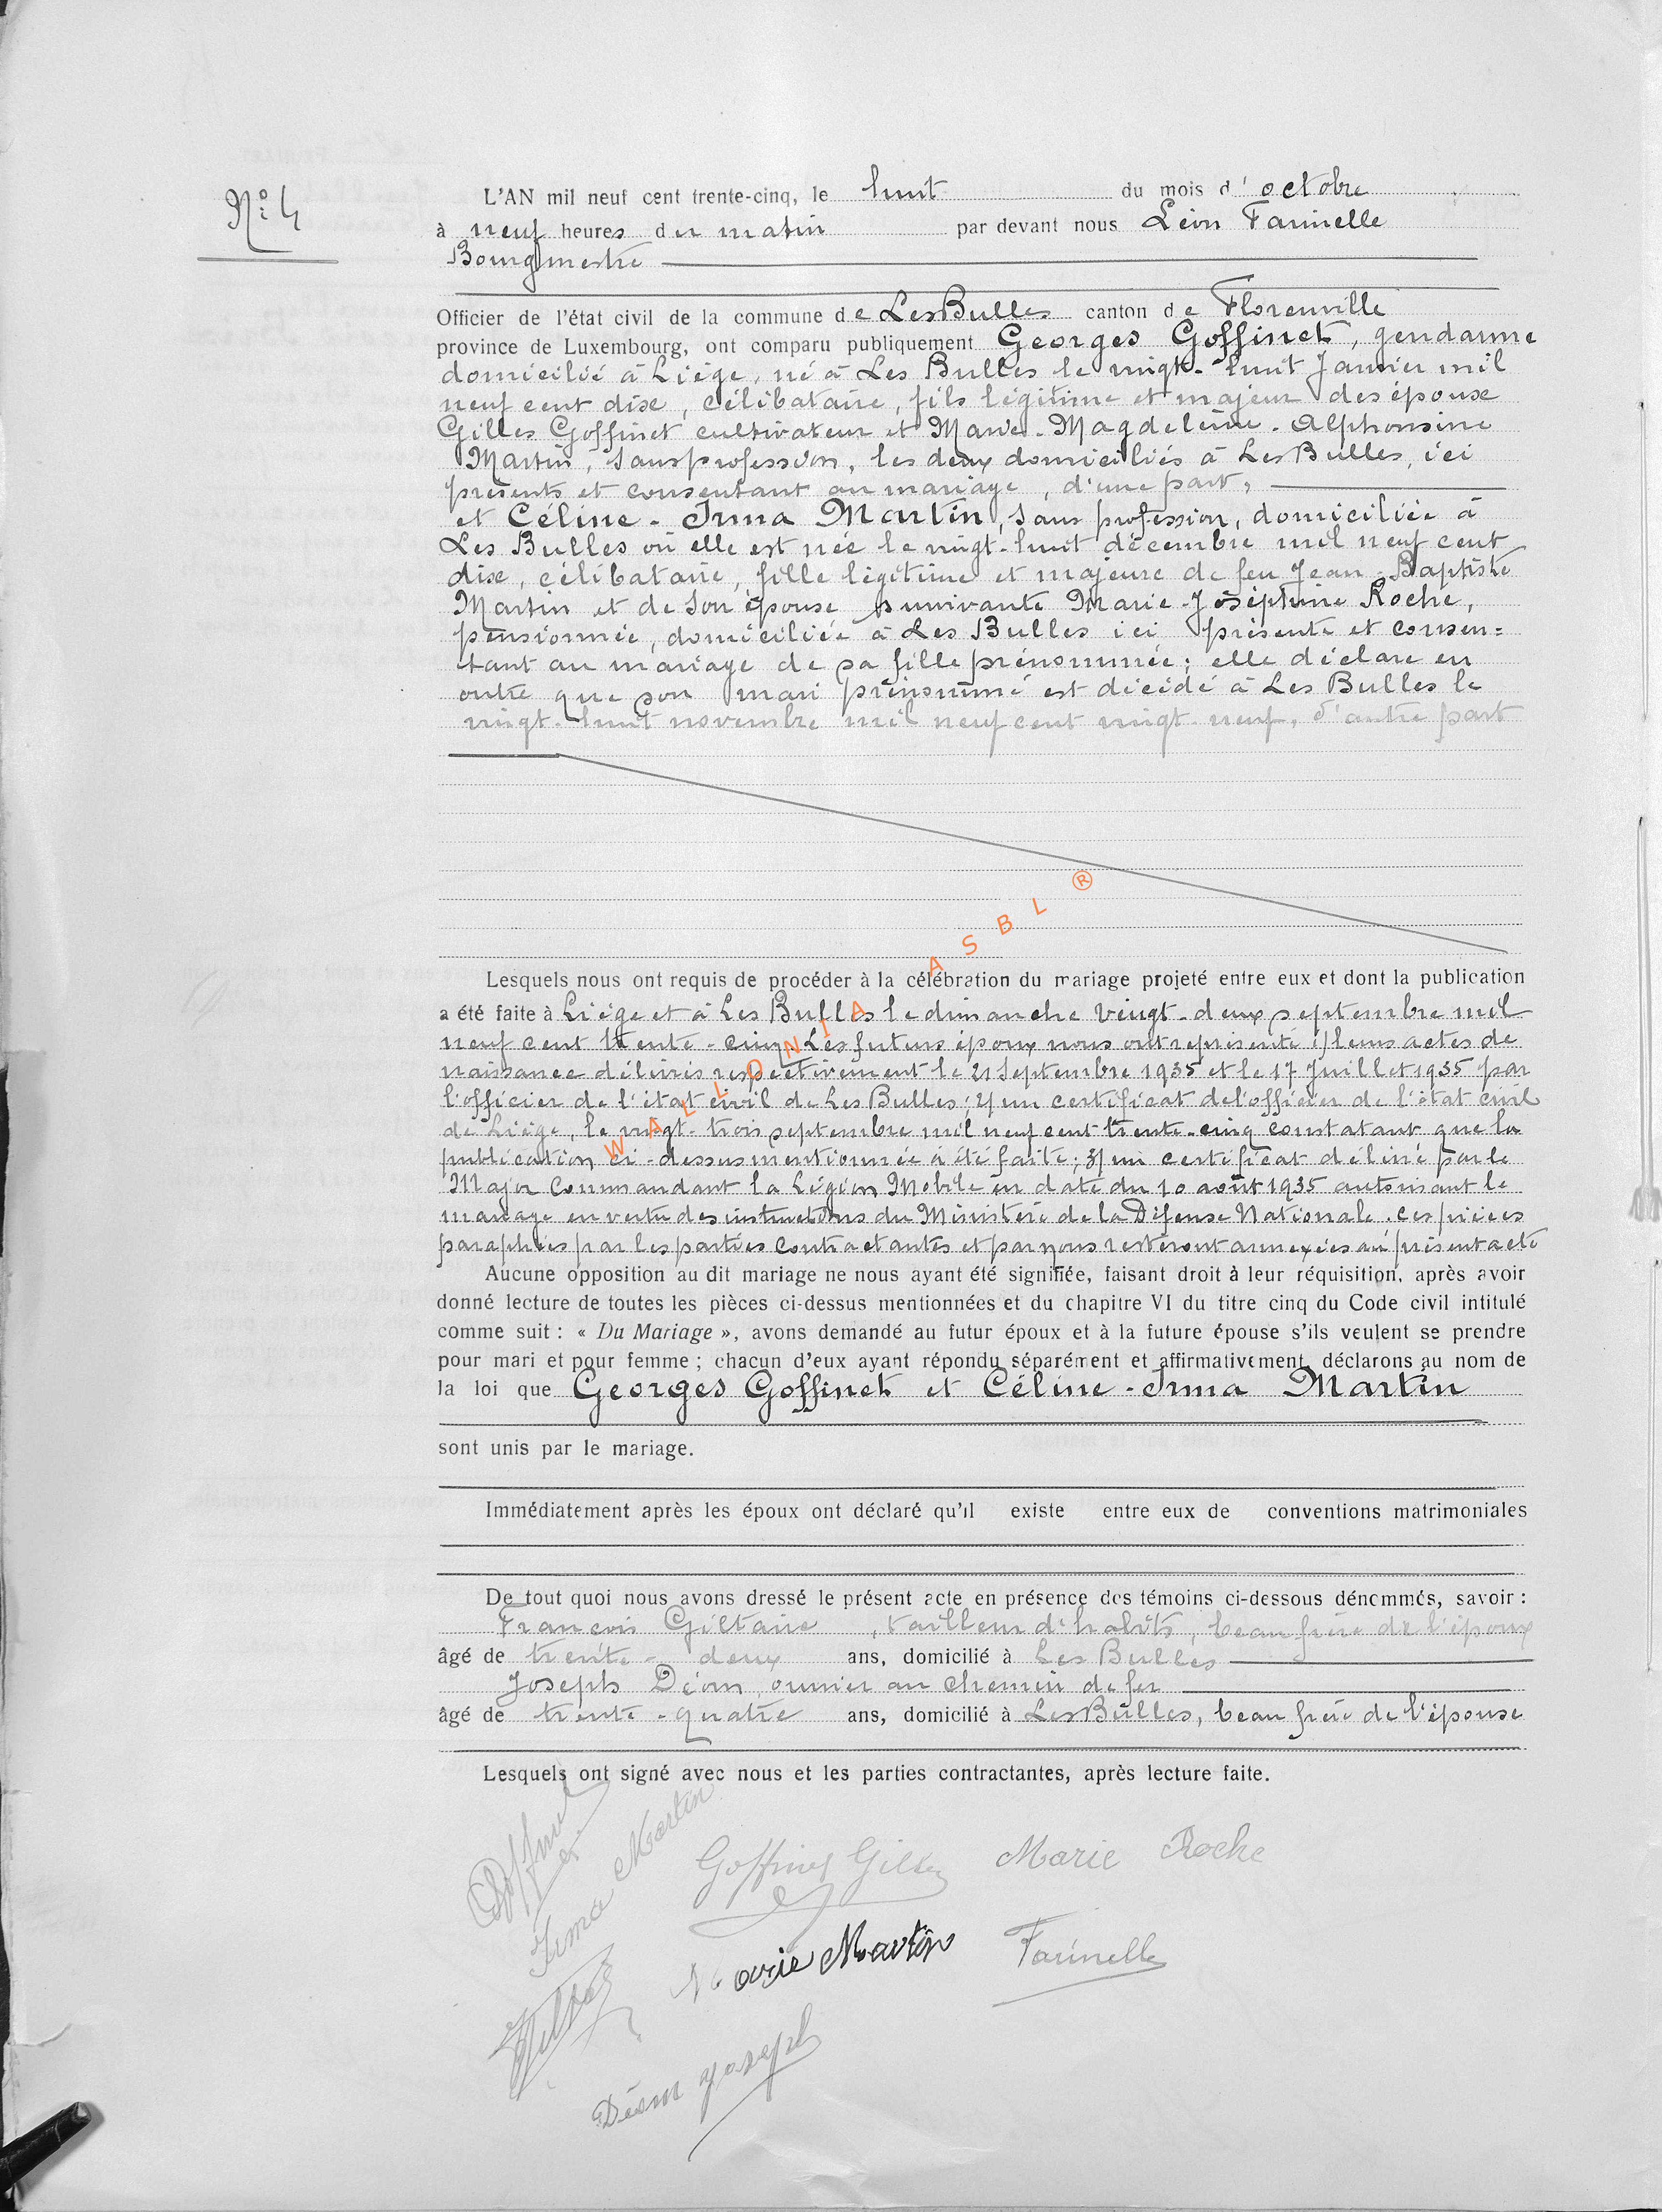 N° 4
L'AN mil neuf cent trente-cinq, le huit du mois d'octobre
à neuf heures du matin par devant nous Léon Farinelle
Bourgmestre
Officier de l'état civil de la commune de Les Bulles canton de Florenville
province de Luxembourg, ont comparu publiquement Georges Goffinet, gendarme
domicilié à Liège, né à Les Bulles le vingt-huit Janvier mil
neuf cent dix, célibataire, fils légitime et majeur des époux
Gilles Goffinet cultivateur et Marie-Magdeleine-Alphonsine
Martin, sans profession, les deux domiciliés à Les Bulles, ici
présents et consentant au mariage, d'une part,
et Céline-Irma Martin, sans profession, domiciliée à
Les Bulles où elle est née le vingt-huit décembre mil neuf cent
dix, célibataire, fille légitime et majeure de feu Jean-Baptiste
Martin et de son épouse survivante Marie-Joséphine Roche,
pensionnée, domiciliée à Les Bulles ici présente et consen=
tant au mariage de sa fille prénommée; elle déclare en
outre que son mari prénommé est décédé à Les Bulles le
vingt-huit novembre mil neuf cent vingt-neuf, d'autre part
Lesquels nous ont requis de procéder à la célébration du mariage projeté entre eux et dont la publication
a été faite à Liège et à Les Bulles le dimanche vingt-deux septembre mil
neuf cent trente-cinq. Les futurs époux nous ont représenté 1) leurs actes de
naissance délivrés respectivement le 21 Septembre 1935 et le 17 Juillet 1935 par
l'officier de l'état civil de Les Bulles; 2) un certificat de l'officier de l'état civil
de Liège, le vingt-trois septembre mil neuf cent trente-cinq constatant que la
publication ci-dessus mentionnée a été faite; 3) un certificat délivré par le
Major Commandant la Légion Mobile en date du 10 août 1935 autorisant le
mariage en vertu des instructions du Ministère de la Défense Nationale. ces pièces
paraphées par les parties contractantes et par nous resteront annexées au présent acte
Aucune opposition au dit mariage ne nous ayant été signifiée, faisant droit à leur réquisition, après avoir
donné lecture de toutes les pièces ci-dessus mentionnées et du chapitre VI du titre cinq du Code civil intitulé
comme suit : « Du Mariage », avons demandé au futur époux et à la future épouse s'ils veulent se prendre
pour mari et pour femme ; chacun d'eux ayant répondu séparément et affirmativement, déclarons au nom de
la loi que Georges Goffinet et Céline-Irma Martin
sont unis par le mariage.
Immédiatement après les époux ont déclaré qu'il existe entre eux de conventions matrimoniales
De tout quoi nous avons dressé le présent acte en présence des témoins ci-dessous dénommés, savoir :
François Giltaire, tailleur d'habits, beau frère de l'époux
âgé de trente-deux ans, domicilié à Les Bulles
Joseph Déom, ouvrier au chemin de fer
âgé de trente-quatre ans, domicilié à Les Bulles, beau frère de l'épouse
Lesquels ont signé avec nous et les parties contractantes, après lecture faite.
Goffinet
Irma Martin
Goffinet Gilles Marie Roche
Marie Martin Farinelle
Déom Joseph
WALLONIA ASBL ®